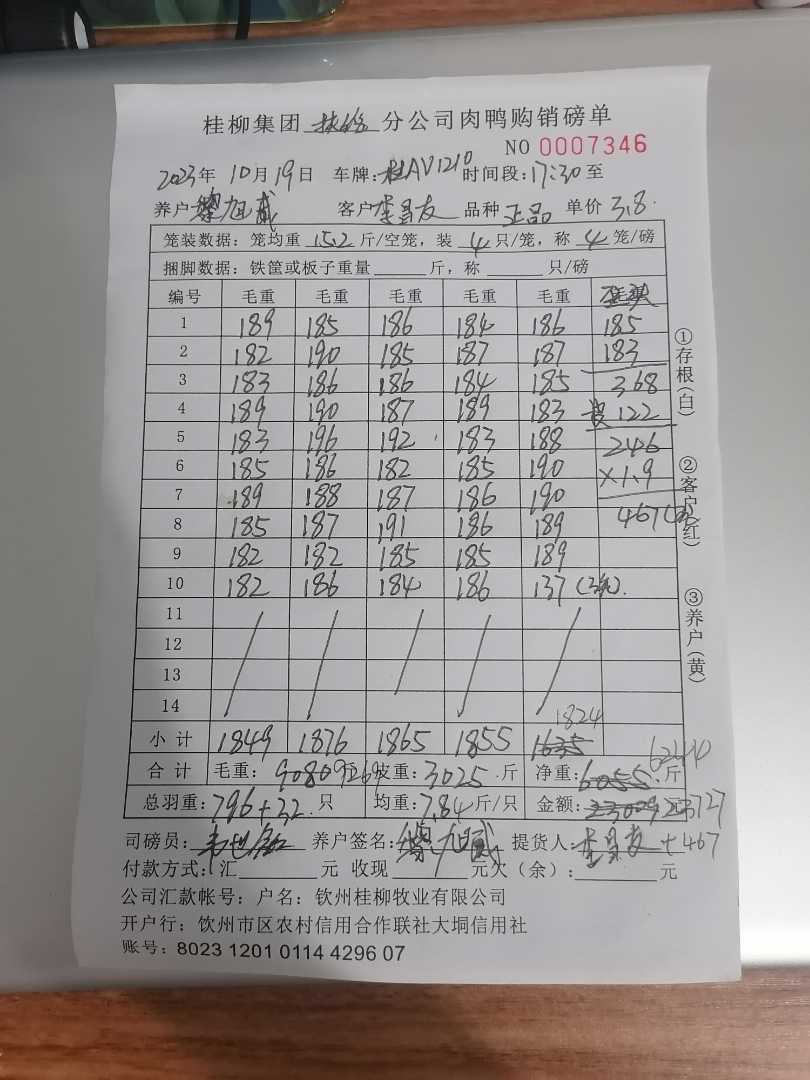 桂柳集团 分公司肉鸭购销磅单
NO 0007346
2023年 10月 19日 车牌:桂AV1210 时间段:17:30至
养户黎旭威 客户李昌友 品种 正品 单价 3.8
笼装数据:笼均重 15.2 斤/空笼,装 4 只/笼,称 4 笼/磅
捆脚数据:铁筐或板子重量 斤,称 只/磅
编号 毛重 毛重 毛重 毛重 毛重
1 189 185 186 184 186 185
2 182 190 185 187 187 183
3 183 186 186 184 185 368
4 189 190 187 189 183 皮122
5 183 196 192 183 188 246
6 185 186 182 185 190 ×1.9
7 189 188 187 186 190
8 185 187 191 186 189 467
9 182 182 185 185 189
10 182 186 184 186 137
11
12
13
14
1824
小计 1849 1876 1865 1855 1635
合计 毛重:9080 9269 皮重:3025 斤 净重:6055 6244 斤
总羽重:796+32 只 均重:7.84斤/只 金额:23009 元 23727
+467
司磅员: 养户签名:黎旭威 提货人:李昌友
付款方式:(汇 元 收现 元欠(余): 元
公司汇款帐号:户名:钦州桂柳牧业有限公司
开户行:钦州市区农村信用合作联社大垌信用社
账号:8023 1201 0114 4296 07
①存根(白)
②客户(红)
③养户(黄)